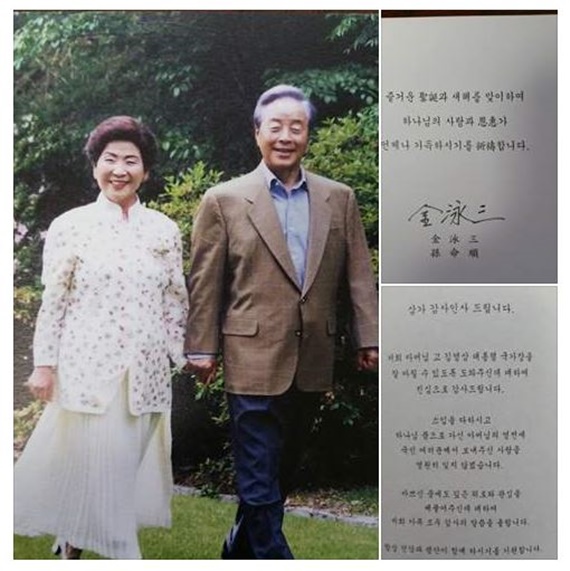 즐거운 聖誕과 새해를 맞이하며
하나님의 사랑과 恩惠가
언제나 가득하시기를 祈禱합니다.
金泳三
金 泳 三
孫 命 順
삼가 감사인사 드립니다.
저희 아버님 고 김영삼 대통령 국가장을
잘 마칠 수 있도록 도와주신데 대하여
진심으로 감사드립니다.
소임을 다하시고
하나님 품으로 가신 아버님의 영전에
국민 여러분께서 보내주신 사랑을
영원히 잊지 않겠습니다.
바쁘신 중에도 깊은 위로와 관심을
베풀어주신데 대하여
저희 가족 모두 감사의 말씀을 올립니다.
항상 건강과 평안이 함께 하시기를 기원합니다.